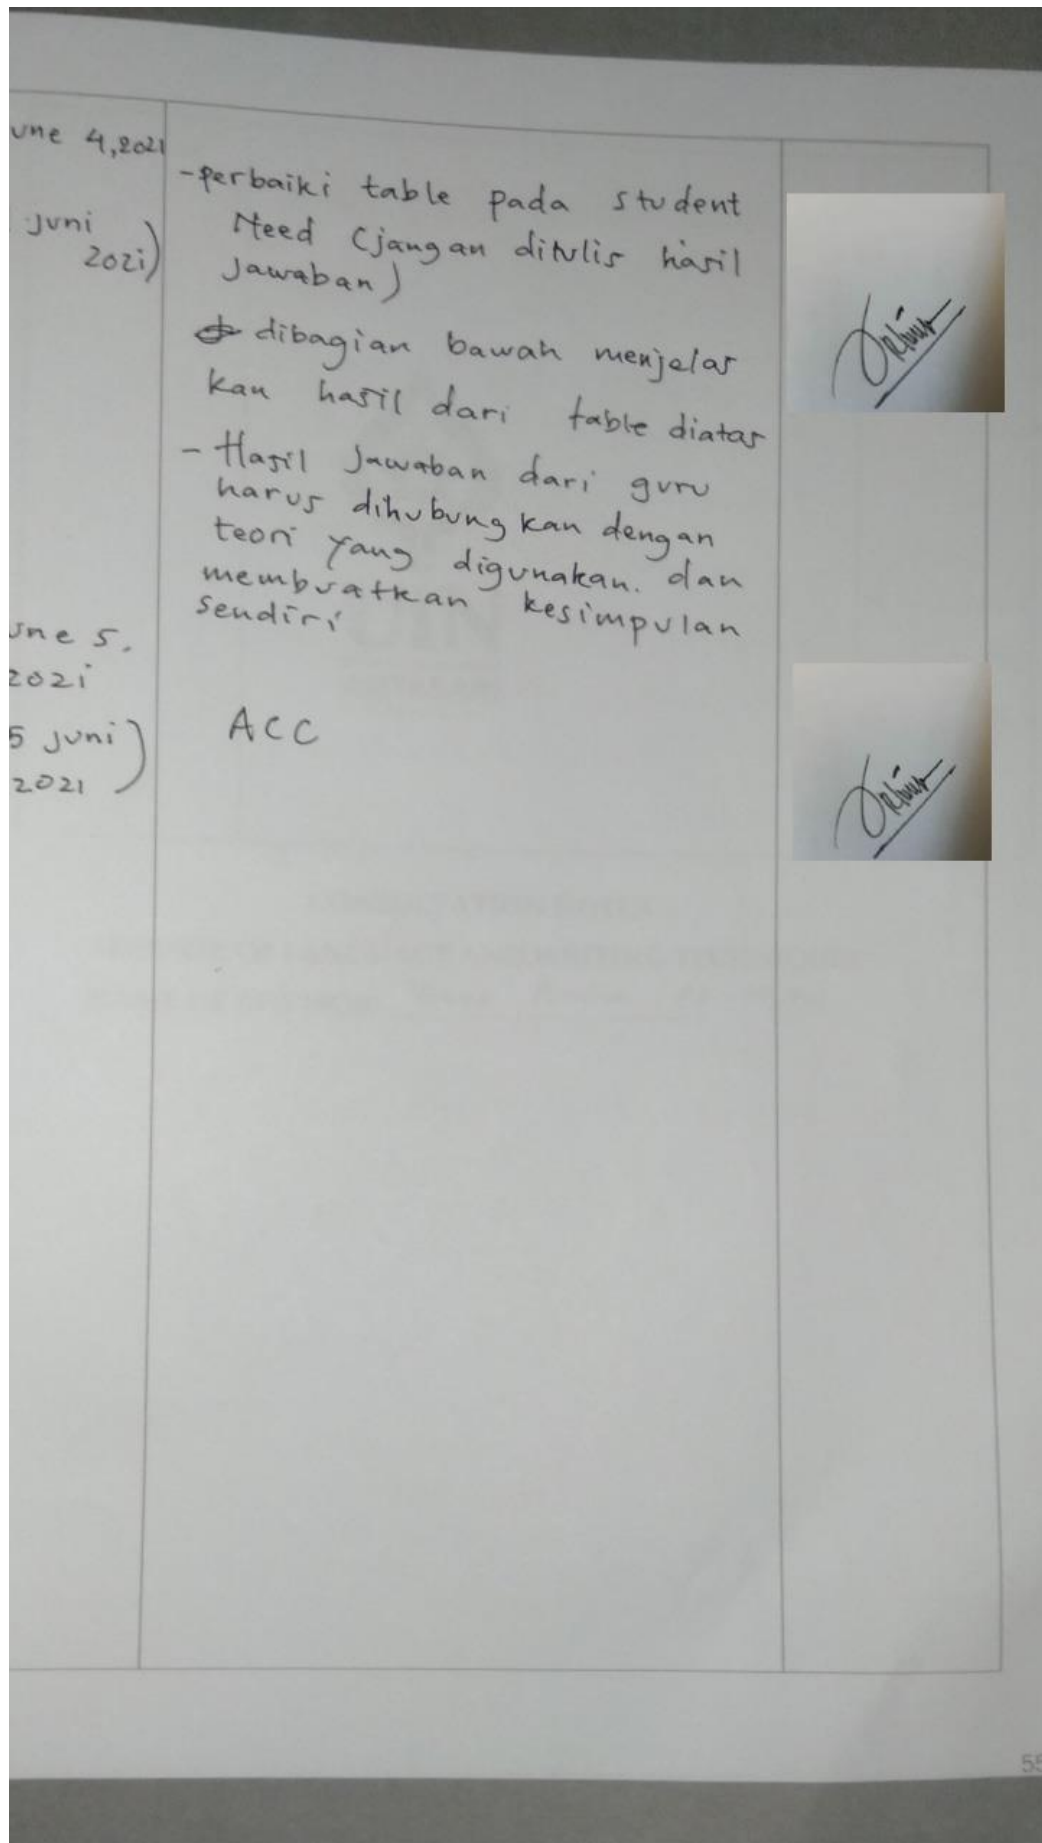 une 4,2021
juni
2021)
-perbaiki table pada student
Need (jangan ditulis hasil
Jawaban)
dibagian bawah menjelas
kan hasil dari table diatas
- Hasil Jawaban dari guru
harus dihubungkan dengan
teori yang digunakan. dan
membuatkan kesimpulan
sendiri
une 5.
2021
5 juni)
2021
ACC
55